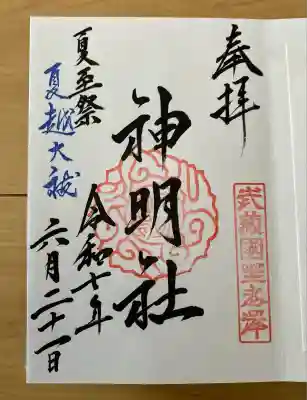 奉拝
武蔵國野老澤
神明社
令和七年
六月二十一日
夏至祭
夏越大祓